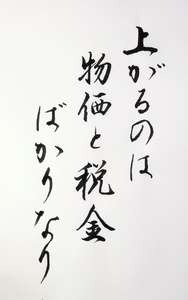 上がるのは
物価と税金
ばかりなり